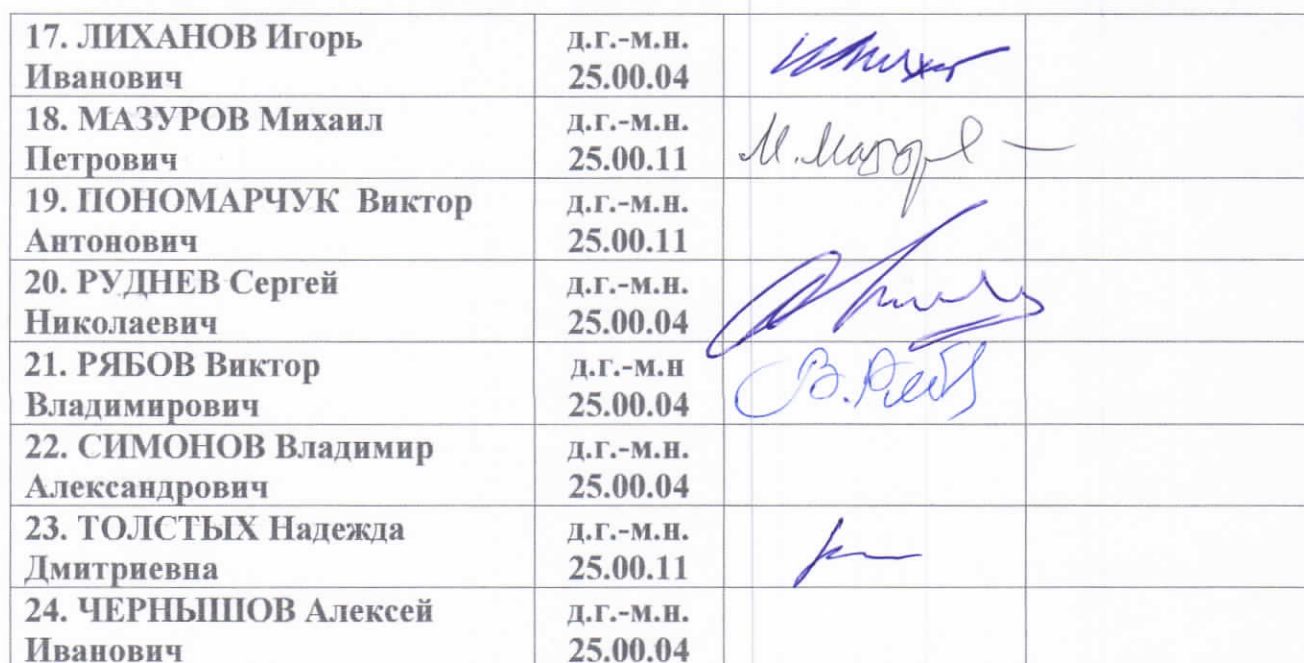 17. ЛИХАНОВ Игорь
Иванович
д.г.-м.н.
25.00.04
18. МАЗУРОВ Михаил
Петрович
д.г.-м.н.
25.00.11
М. Мазуров
19. ПОНОМАРЧУК Виктор
Антонович
д.г.-м.н.
25.00.11
20. РУДНЕВ Сергей
Николаевич
д.г.-м.н.
25.00.04
21. РЯБОВ Виктор
Владимирович
д.г.-м.н
25.00.04
22. СИМОНОВ Владимир
Александрович
д.г.-м.н.
25.00.04
23. ТОЛСТЫХ Надежда
Дмитриевна
д.г.-м.н.
25.00.11
24. ЧЕРНЫШОВ Алексей
Иванович
д.г.-м.н.
25.00.04